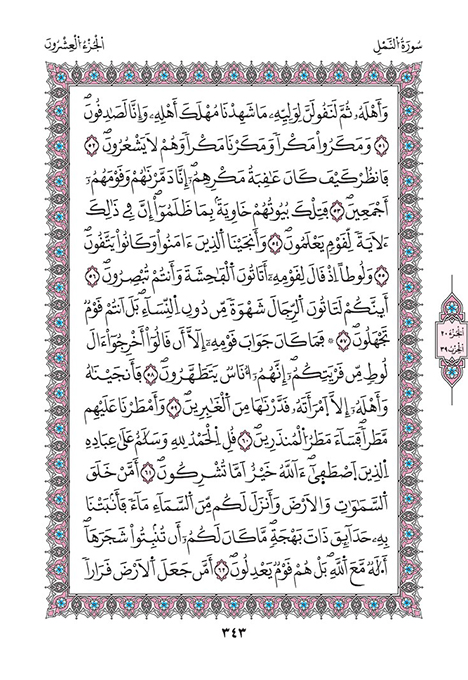 سُورَةُ النَّمْلِ
الجُزْءُ الْعِشْرُونَ
وَأَهْلَهُۥ ثُمَّ لَنَقُولَنَّ لِوَلِيِّهِۦ مَا شَهِدْنَا مُهْلَكَ أَهْلِهِۦ وَإِنَّا لَصَٰدِقُونَۖ
٥١ وَمَكَرُواْ مَكْراٗ وَمَكَرْنَا مَكْراٗ وَهُمْ لَا يَشْعُرُونَۖ ٥٢
فَانظُرْ كَيْفَ كَانَ عَٰقِبَةُ مَكْرِهِمُۥٓ إِنَّا دَمَّرْنَٰهُمْ وَقَوْمَهُمُۥٓ
أَجْمَعِينَۖ ٥٣ فَتِلْكَ بُيُوتُهُمْ خَاوِيَةَۢ بِمَا ظَلَمُوٓاْۖ إِنَّ فِے ذَٰلِكَ
لَأٓيَةٗ لِّقَوْمٖ يَعْلَمُونَۖ ٥٤ وَأَنجَيْنَا اَ۬لذِينَ ءَامَنُواْ وَكَانُواْ يَتَّقُونَۖ
٥٥ وَلُوطاً اِذْ قَالَ لِقَوْمِهِۦٓ أَتَاتُونَ اَ۬لْفَٰحِشَةَ وَأَنتُمْ تُبْصِرُونَۖ ٥٦
أَئِنَّكُمْ لَتَاتُونَ اَ۬لرِّجَالَ شَهْوَةٗ مِّن دُونِ اِ۬لنِّسَآءِۖ بَلَ اَنتُمْ قَوْمٞ
تَجْهَلُونَۖ ٥٧ ۞ فَمَا كَانَ جَوَابَ قَوْمِهِۦٓ إِلَّآ أَن قَالُوٓاْ أَخْرِجُوٓاْ ءَالَ
لُوطٖ مِّن قَرْيَتِكُمُۥٓۖ إِنَّهُمُۥٓ أُنَاسٞ يَتَطَهَّرُونَۖ ٥٨ فَأَنجَيْنَٰهُ
وَأَهْلَهُۥٓ إِلَّا اَ۪مْرَأَتَهُۥ قَدَّرْنَٰهَا مِنَ اَ۬لْغَٰبِرِينَۖ ٥٩ وَأَمْطَرْنَا عَلَيْهِم
مَّطَراٗۖ فَسَآءَ مَطَرُ اُ۬لْمُنذَرِينَۖ ٦٠ قُلِ اِ۬لْحَمْدُ لِلهِ وَسَلَٰمٌ عَلَىٰ عِبَادِهِ
اِ۬لذِينَ اَ۪صْطَفَىٰٓۖ ءَآللَّهُ خَيْرٌ اَمَّا تُشْرِكُونَۖ ٦١ أَمَّنْ خَلَقَ
اَ۬لسَّمَٰوَٰتِ وَالْأَرْضَ وَأَنزَلَ لَكُم مِّنَ اَ۬لسَّمَآءِ مَآءٗ فَأَنۢبَتْنَا
بِهِۦ حَدَآئِقَ ذَاتَ بَهْجَةٖۖ مَّا كَانَ لَكُمُۥٓ أَن تُنۢبِتُواْ شَجَرَهَآۖ
أَ۟لَٰهٞ مَّعَ اَ۬للَّهِۖ بَلْ هُمْ قَوْمٞ يَعْدِلُونَۖ ٦٢ أَمَّن جَعَلَ اَ۬لْأَرْضَ قَرَاراٗ
الجُزْء ٢٠
الحِزْب ٣٩
٣٤٣